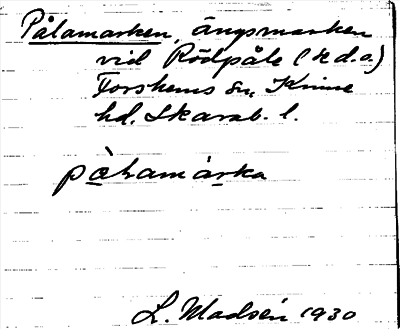 Pålamarken, ängsmarken
vid Rödpåle (k d.o.)
Forshems sn, Kinne
hd. Skarab. l.
pàlamàrka
L. Madsén 1930